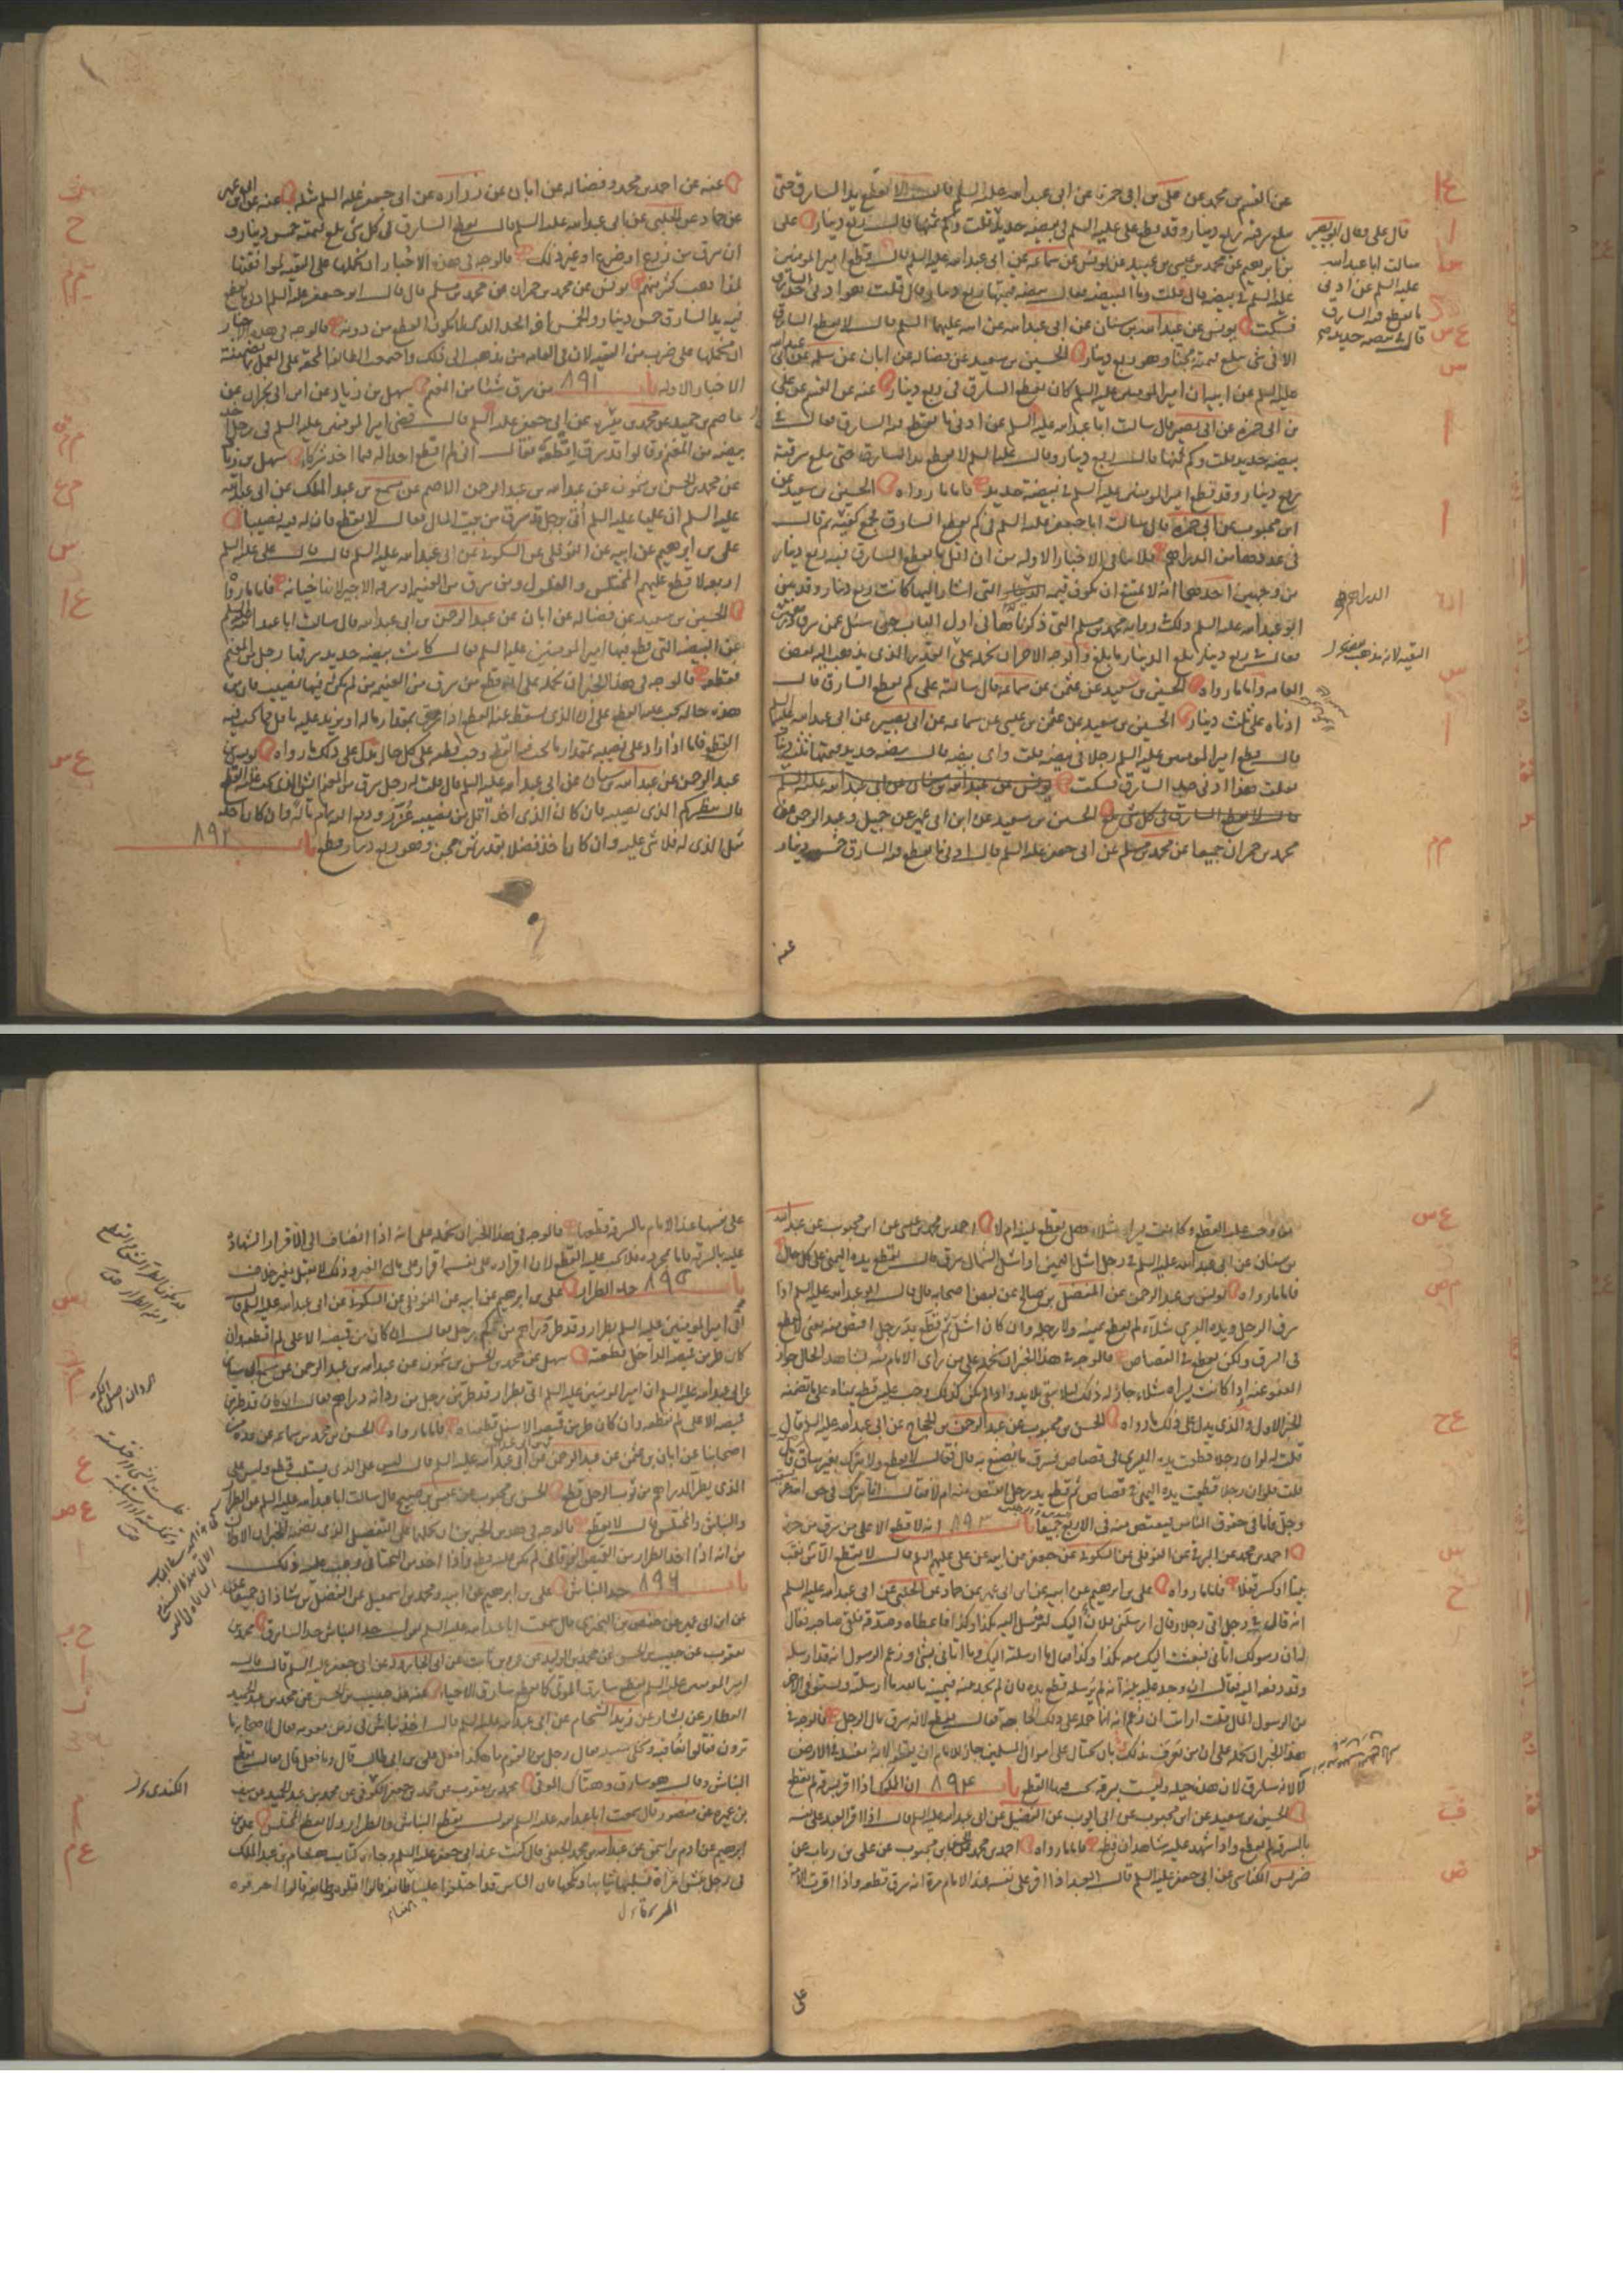 عن القسم بن محمد عن علي بن ابي حمزة عن ابي عبد الله عليه السلم قال لا تقطع يد السارق حتى
تبلغ سرقته ربع دينار وقد قطع علي عليه السلم في بيضة حديد قلت وكم ثمنها قال ربع دينار على
بن ابرهيم عن محمد بن عيسى بن عبيد عن يونس عن سماعة عن ابي عبد الله عليه السلم قال قطع امير المومنين
عليه السلم في بيضة قال قلت وما البيضة فقال بيضة قيمتها ربع دينار قال قلت هو ادنى حد السارق
فسكت يونس عن عبد الله بن سنان عن ابي عبد الله عليه السلم قال لا يقطع السارق
الا في شي تبلغ قيمته مجنا وهو ربع دينار الحسين بن سعيد عن فضاله عن ابان عن سلمه عن ابي عبد الله
عليه السلم عن ابيه ان امير المومنين عليه السلم كان يقطع السارق في ربع دينار عنه عن القسم عن علي
بن ابي حمزه عن ابي بصير قال سالت ابا عبد الله عليه السلم عن ادنى ما يقطع فيه السارق فقال في
بيضه حديد قلت وكم ثمنها قال ربع دينار وقال عليه السلم لا يقطع يد السارق حتى تبلغ سرقته
ربع دينار وقد قطع امير المومنين عليه السلم في بيضة حديد فاما ما رواه الحسين بن سعيد عن
ابن محبوب عن ابي حمزه قال سالت ابا جعفر عليه السلم في كم يقطع السارق فجمع كفيه ثم قال
في عددها من الدراهم فلا ينافي الاخبار الاوله من ان اقل ما يقطع السارق فيه ربع دينار
من وجهين احدهما انه لا يمتنع ان يكون قيمة الدراهم التي اشار اليها كانت ربع دينار وقد بين
ابو عبد الله عليه السلم ذلك في رواية محمد بن مسلم التي ذكرناها في اول الباب حين سئل عمن سرق
فقال في ربع دينار بلغ الدينار ما بلغ والوجه الاخر ان نحمله على التقية الذي يذهب اليه بعض
العامه واما ما رواه الحسين بن سعيد عن عثمن عن سماعة قال سالته على كم يقطع السارق قال
ادناه على ثلث دينار الحسين بن سعيد عن عثمن بن عيسى عن سماعه عن ابي بصير عن ابي عبد الله عليه السلم
قال قطع امير المومنين عليه السلم رجلا في بيضه قلت واي بيضه قال بيضه حديد قيمتها ثلث دينار
فقلت هذا ادنى حد السارق فسكت يونس عن عبد الله بن سنان عن ابي عبد الله عليه السلم
قال لا يقطع السارق في كل شي بلغ الحسين بن سعيد عن ابن ابي عمير عن جميل وعبد الرحمن عن
محمد بن حمران جميعا عن محمد بن مسلم عن ابي جعفر عليه السلم قال ادنى ما يقطع فيه السارق خمس دينار
قال علي وقال ابو بصير
سالت ابا عبد الله
عليه السلم عن ادنى
ما يقطع فيه السارق
قال في بيضه حديد
الدراهم
التقية لانه مذهب
عنه عن احمد بن محمد وفضاله عن ابان عن زراره عن ابي جعفر عليه السلم مثله عنه عن ابن ابي عمير
عن حماد عن الحلبي عن ابي عبد الله عليه السلم قال يقطع السارق في كل شي بلغ قيمته خمس دينار و
ان سرق من زرع او ضرع او غير ذلك فالوجه في هذه الاخبار ان نحملها على التقية لموافقتها
لمذاهب كثير منهم يونس عن محمد بن حمران عن محمد بن مسلم قال قال ابو جعفر عليه السلم ادنى ما يقطع
فيه يد السارق خمس دينار والخمس اخر الحد الذي لا يكون القطع من دونه فالوجه في هذه الاخبار
ان نحملها على ضرب من التقية لان في العامه من يذهب الى ذلك واجمعت الطائفة المحقة على العمل بما تضمنته
الاخبار الاوله باب ٨٩١ من سرق شيئا من المغنم سهل بن زياد عن ابن ابي نجران عن
عاصم بن حميد عن محمد بن قيس عن ابي جعفر عليه السلم قال قضى امير المومنين عليه السلم في رجل اخذ
بيضه من المغنم وقالوا قد سرق اقطعه فقال اني لم اقطع احدا له فيما اخذ شركا سهل بن زياد
عن محمد بن الحسن بن شمون عن عبد الله بن عبد الرحمن الاصم عن مسمع بن عبد الملك عن ابي عبد الله
عليه السلم ان عليا عليه السلم اتي برجل قد سرق من بيت المال فقال لا يقطع فان له فيه نصيبا
علي بن ابرهيم عن ابيه عن النوفلي عن السكوني عن ابي عبد الله عليه السلم قال قال علي عليه السلم
اربعة لا قطع عليهم المختلس والغلول ومن سرق من الغنيمه وسرقة الاجير لانها خيانه فاما ما رواه
الحسين بن سعيد عن فضاله عن ابان عن عبد الرحمن بن ابي عبد الله قال سالت ابا عبد الله عليه السلم
عن البيضه التي قطع فيها امير المومنين عليه السلم فقال كانت بيضه حديد سرقها رجل من المغنم
فقطعه فالوجه في هذا الخبر ان نحمله على انه قطع من سرق من الغنيمه من لم يكن له فيها نصيب فان من
هذه حاله يجب عليه القطع على ان الذي يسقط عنه القطع اذا سرق بمقدار ماله او يزيد عليه باقل مما يجب فيه
القطع فاما اذا زاد على نصيبه بمقدار ما يجب فيه القطع وجب قطعه على كل حال يدل على ذلك ما رواه يونس بن
عبد الرحمن عن عبد الله بن سنان عن ابي عبد الله عليه السلم قال قلت له رجل سرق من المغنم الشي الذي يجب عليه القطع
قال ينظر كم الذي نصيبه فان كان الذي اخذ اقل من نصيبه عزر ودفع اليه تمام ماله وان كان اخذ
مثل الذي له فلا شي عليه وان كان اخذ فضلا بقدر ثمن مجن وهو ربع دينار قطع باب ٨٩٢
من وجب عليه القطع وكانت يسراه شلاء هل يقطع يمينه ام لا احمد بن محمد بن عيسى عن ابن محبوب عن عبد الله
بن سنان عن ابي عبد الله عليه السلم في رجل اشل اليمين او اشل الشمال سرق قال يقطع يده اليمنى على كل حال
فاما ما رواه يونس بن عبد الرحمن عن المفضل بن صالح عن بعض اصحابه قال قال ابو عبد الله عليه السلم اذا
سرق الرجل ويده اليسرى شلاء لم يقطع يمينه ولا رجله وان كان اشل ثم قطع يد رجل اقتص منه يعني لا يقطع
في السرقة ولكن يقطع في القصاص فالوجه في هذا الخبر ان نحمله على من راى الامام منه لشاهد الحال جواز
العفو عنه اذا كانت يسراه شلاء جاز له ذلك لئلا يبقى بلا يد واذا لم يكن كذلك وجب عليه قطع يمناه على ما تضمنه
الخبر الاول والذي يدل على ذلك ما رواه الحسن بن محبوب عن عبد الرحمن بن الحجاج عن ابي عبد الله عليه السلم قال
قلت له لو ان رجلا قطعت يده اليسرى في قصاص فسرق ما يصنع به قال فقال لا يقطع ولا يترك بغير ساق قال
قلت فلو ان رجلا قطعت يده اليمنى في قصاص ثم قطع يد رجل اقتص منه ام لا فقال انما يترك في حق الله عز
وجل فاما في حقوق الناس فيقتص منه في الاربع جميعا باب ٨٩٣ انه لا قطع الا على من سرق من حرز
احمد بن محمد عن البرقي عن النوفلي عن السكوني عن جعفر عن ابيه عن علي عليهم السلم قال لا يقطع الا من نقب
بيتا او كسر قفلا فاما ما رواه علي بن ابرهيم عن ابيه عن ابن ابي عمير عن حماد عن الحلبي عن ابي عبد الله عليه السلم
انه قال في رجل اتى رجلا وقال ارسلني فلان اليك لترسل اليه بكذا وكذا فاعطاه وصدقه فلقي صاحبه فقال
له ان رسولك اتاني فبعثت اليك معه بكذا وكذا فقال ما ارسلته اليك وما اتاني بشي وزعم الرسول انه قد ارسله
وقد دفعه اليه فقال ان وجد عليه بينة انه لم يرسله قطع يده فان لم يجد بينة فيمينه بالله ما ارسلته ويستوفي الاخر
من الرسول المال قلت ارايت ان زعم انه انما حمله على ذلك الحاجة فقال يقطع لانه سرق مال الرجل فالوجه في
هذا الخبر ان نحمله على ان من يعرف بذلك بان يحتال على اموال المسلمين جاز للامام ان يقطعه لانه مفسد في الارض
لا لانه سارق لان هذه حيله وليست بسرقة يجب فيها القطع باب ٨٩٤ ان المملوك اذا اقر بسرقة لم يقطع
الحسين بن سعيد عن ابن محبوب عن ابي ايوب عن الفضيل عن ابي عبد الله عليه السلم قال اذا اقر العبد على نفسه
بالسرقة لم يقطع واذا شهد عليه شاهدان قطع فاما ما رواه احمد بن محمد عن ابن محبوب عن علي بن رياب عن
ضريس الكناسي عن ابي جعفر عليه السلم قال العبد اذا اقر على نفسه عند الامام مرة انه سرق قطعه واذا اقرت الامة
على نفسها عند الامام بالسرقة قطعها فالوجه في هذا الخبر ان نحمله على انه اذا انضاف الى الاقرار الشهادة
عليه بالسرقة فاما بمجرده فلا يجب عليه القطع لان اقراره على نفسه اقرار على مال الغير وذلك لا يقبل بغير خلاف
باب ٨٩٥ حد الطرار علي بن ابرهيم عن ابيه عن النوفلي عن السكوني عن ابي عبد الله عليه السلم قال
اتي امير المومنين عليه السلم بطرار وقد طر دراهم من كم رجل فقال ان كان من قميصه الاعلى لم اقطعه وان
كان طر من قميصه الداخل قطعته سهل عن محمد بن الحسن بن شمون عن عبد الله بن عبد الرحمن عن مسمع ابي سيار
عن ابي عبد الله عليه السلم ان امير المومنين عليه السلم اتي بطرار قد طر من رجل من ردائه دراهم فقال ان كان قد طر من
قميصه الاعلى لم نقطعه وان كان طر من قميصه الاسفل قطعناه فاما ما رواه الحسن بن محمد بن سماعه عن عدة من
اصحابنا عن ابان بن عثمن عن عبد الرحمن عن ابي عبد الله عليه السلم قال ليس على الذي يستلب قطع وليس على
الذي يطر الدراهم من ثوب الرجل قطع الحسن بن محبوب عن عيسى بن صبيح قال سالت ابا عبد الله عليه السلم عن الطرار
والنباش والمختلس قال لا يقطع فالوجه في هذين الخبرين ان نحملهما على التفصيل الذي تضمنه الخبران الاولان
من انه اذا اخذ الطرار من القميص الفوقاني لم يكن عليه قطع واذا اخذ من التحتاني وجب عليه ذلك
باب ٨٩٦ حد النباش علي بن ابرهيم عن ابيه ومحمد بن اسمعيل عن الفضل بن شاذان جميعا
عن ابن ابي عمير عن حفص بن البختري قال سمعت ابا عبد الله عليه السلم يقول حد النباش حد السارق محمد بن
يعقوب عن حبيب بن الحسن عن محمد بن الوليد عن عمرو بن ثابت عن ابي الجارود عن ابي جعفر عليه السلم قال قال
امير المومنين عليه السلم يقطع سارق الموتى كما يقطع سارق الاحياء عنه عن حبيب بن الحسن عن محمد بن عبد الحميد
العطار عن بشار عن زيد الشحام عن ابي عبد الله عليه السلم قال اخذ نباش في زمن معويه فقال لاصحابه ما
ترون فقالوا نعاقبه ونخلي سبيله فقال رجل من القوم ما هكذا فعل علي بن ابي طالب قال وما فعل قال فقال يقطع
النباش وقال هو سارق وهتاك الموتى محمد بن يعقوب عن محمد بن جعفر الكوفي عن محمد بن عبد الحميد عن سيف
بن عميره عن منصور قال سمعت ابا عبد الله عليه السلم يقول يقطع النباش والطرار ولا يقطع المختلس علي بن
ابرهيم عن ادم بن اسحق عن عبد الله بن محمد الجعفي قال كنت عند ابي جعفر عليه السلم وجاءه كتاب هشام بن عبد الملك
في رجل نبش امراة فسلبها ثيابها ونكحها فان الناس قد اختلفوا علينا طائفة قالوا اقتلوه وطائفة قالوا احرقوه
الكندي